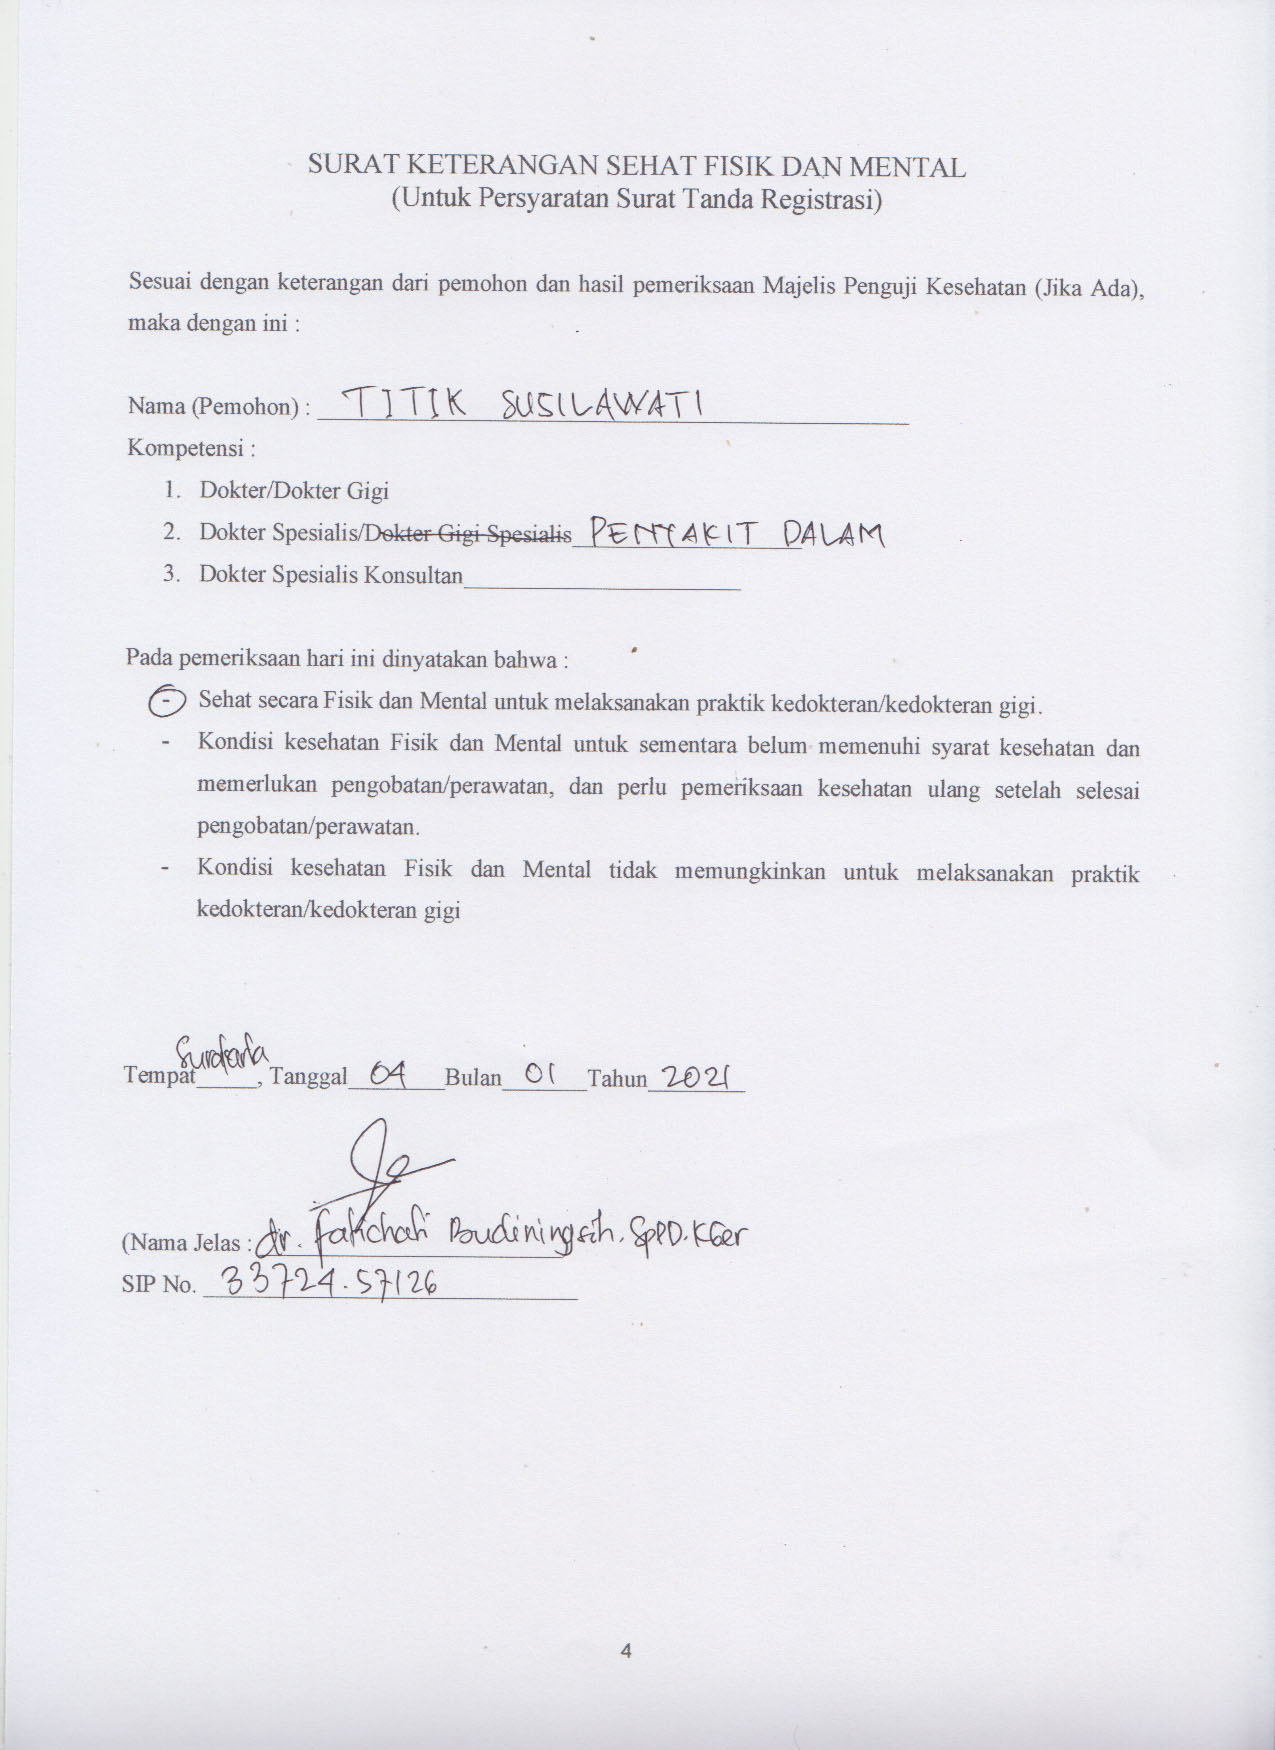 SURAT KETERANGAN SEHAT FISIK DAN MENTAL
(Untuk Persyaratan Surat Tanda Registrasi)
Sesuai dengan keterangan dari pemohon dan hasil pemeriksaan Majelis Penguji Kesehatan (Jika Ada),
maka dengan ini :
Nama (Pemohon) : TITIK SUSILAWATI
Kompetensi :
1. Dokter/Dokter Gigi
2. Dokter Spesialis/Dokter Gigi Spesialis PENYAKIT DALAM
3. Dokter Spesialis Konsultan
Pada pemeriksaan hari ini dinyatakan bahwa :
- Sehat secara Fisik dan Mental untuk melaksanakan praktik kedokteran/kedokteran gigi.
- Kondisi kesehatan Fisik dan Mental untuk sementara belum memenuhi syarat kesehatan dan
memerlukan pengobatan/perawatan, dan perlu pemeriksaan kesehatan ulang setelah selesai
pengobatan/perawatan.
- Kondisi kesehatan Fisik dan Mental tidak memungkinkan untuk melaksanakan praktik
kedokteran/kedokteran gigi
Tempat Surakarta, Tanggal 04 Bulan 01 Tahun 2021
(Nama Jelas : dr. Fatichati Budiningsih. SpPD. KGer
SIP No. 33724.57126
4